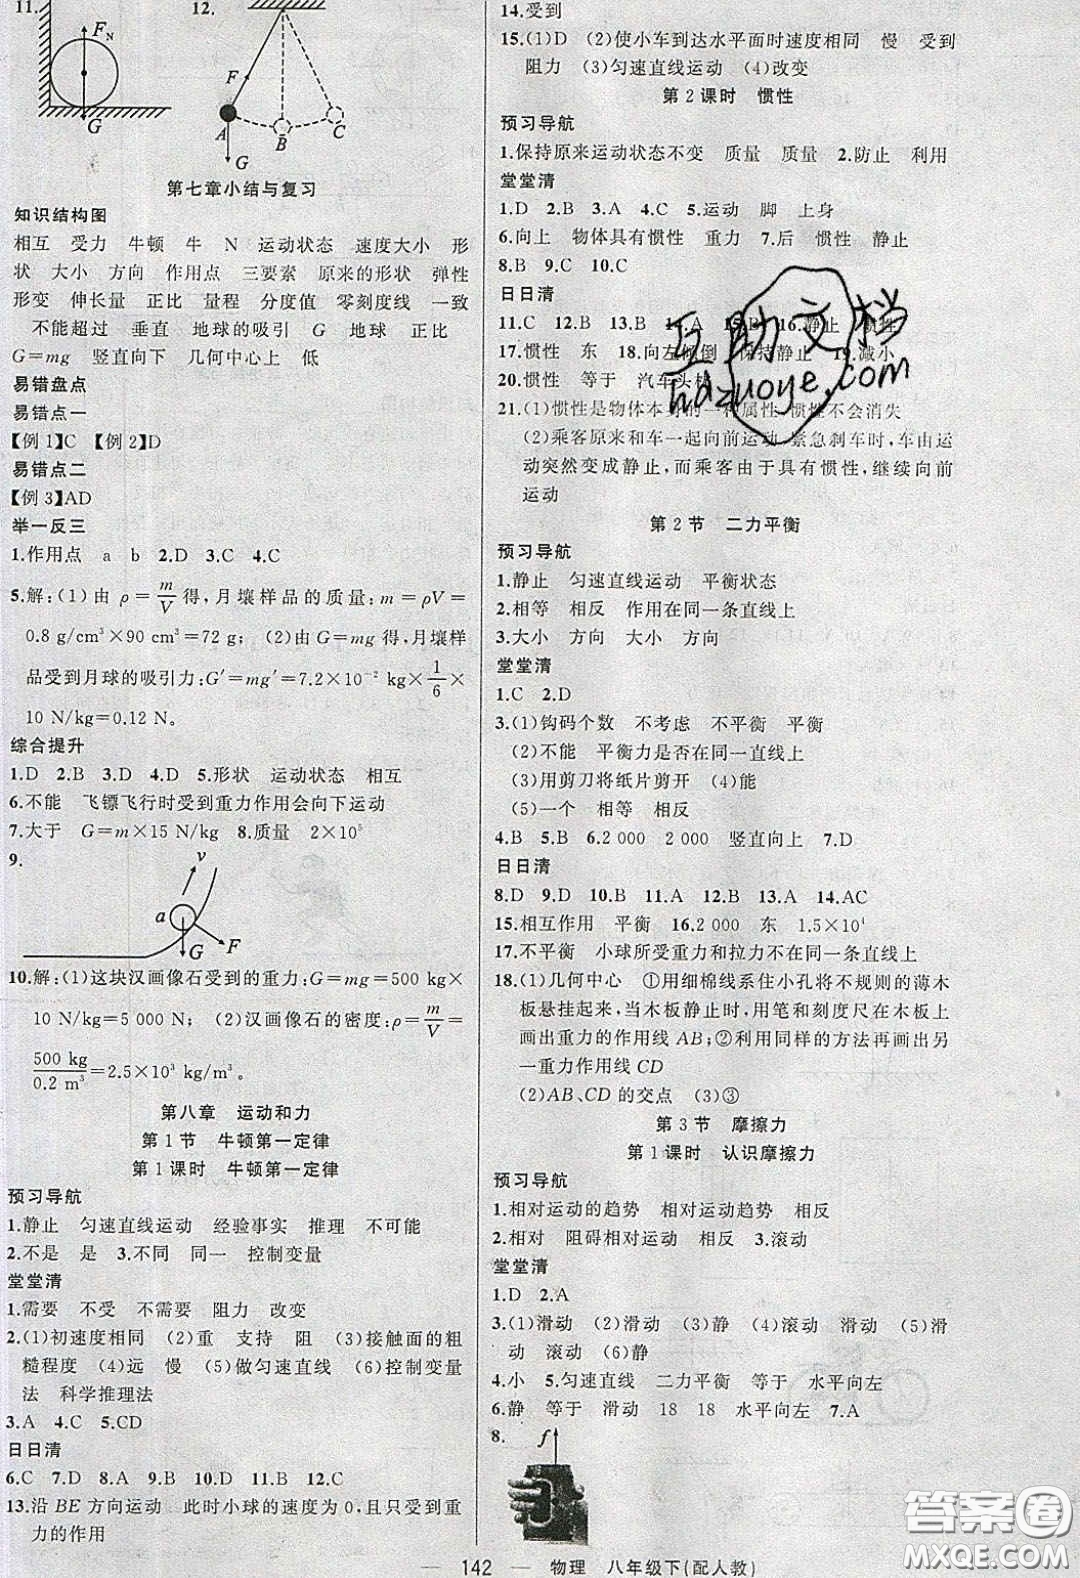 11.
F_N
G
12.
F
A
B
C
G
第七章小结与复习
知识结构图
相互 受力 牛顿 牛 N 运动状态 速度大小 形
状 大小 方向 作用点 三要素 原来的形状 弹性
形变 伸长量 正比 量程 分度值 零刻度线 一致
不能超过 垂直 地球的吸引 G 地球 正比
G=mg 竖直向下 几何中心上 低
易错盘点
易错点一
【例1】C 【例2】D
易错点二
【例3】AD
举一反三
1.作用点 a b 2.D 3.C 4.C
5.解:(1)由ρ=m/V得,月壤样品的质量:m=ρV=
0.8 g/cm³×90 cm³=72 g;(2)由G=mg得,月壤样
品受到月球的吸引力:G′=mg′=7.2×10⁻² kg×1/6×
10 N/kg=0.12 N。
综合提升
1.D 2.B 3.D 4.D 5.形状 运动状态 相互
6.不能 飞镖飞行时受到重力作用会向下运动
7.大于 G=m×15 N/kg 8.质量 2×10⁵
9.
v
a
G
F
10.解:(1)这块汉画像石受到的重力:G=mg=500 kg×
10 N/kg=5 000 N;(2)汉画像石的密度:ρ=m/V=
500 kg/0.2 m³=2.5×10³ kg/m³。
第八章 运动和力
第1节 牛顿第一定律
第1课时 牛顿第一定律
预习导航
1.静止 匀速直线运动 经验事实 推理 不可能
2.不是 是 3.不同 同一 控制变量
堂堂清
1.需要 不受 不需要 阻力 改变
2.(1)初速度相同 (2)重 支持 阻 (3)接触面的粗
糙程度 (4)远 慢 (5)做匀速直线 (6)控制变量
法 科学推理法
3.A 4.C 5.CD
日日清
6.C 7.D 8.A 9.B 10.B 11.B 12.C
13.沿BE方向运动 此时小球的速度为0,且只受到重
力的作用
14.受到
15.(1)D (2)使小车到达水平面时速度相同 慢 受到
阻力 (3)匀速直线运动 (4)改变
第2课时 惯性
预习导航
1.保持原来运动状态不变 质量 质量 2.防止 利用
堂堂清
1.D 2.B 3.A 4.C 5.运动 脚 上身
6.向上 物体具有惯性 重力 7.后 惯性 静止
8.B 9.C 10.C
日日清
11.C 12.B 13.B 14.A 15.B 16.静止 惯性
17.惯性 东 18.向左倾倒 保持静止 19.减小
20.惯性 等于 汽车头枕
21.(1)惯性是物体本身的一种属性,惯性不会消失
(2)乘客原来和车一起向前运动,紧急刹车时,车由运
动突然变成静止,而乘客由于具有惯性,继续向前
运动
第2节 二力平衡
预习导航
1.静止 匀速直线运动 平衡状态
2.相等 相反 作用在同一条直线上
3.大小 方向 大小 方向
堂堂清
1.C 2.D
3.(1)钩码个数 不考虑 不平衡 平衡
(2)不能 平衡力是否在同一直线上
(3)用剪刀将纸片剪开 (4)能
(5)一个 相等 相反
4.B 5.B 6.2 000 2 000 竖直向上 7.D
日日清
8.D 9.D 10.B 11.A 12.B 13.A 14.AC
15.相互作用 平衡 16.2 000 东 1.5×10⁴
17.不平衡 小球所受重力和拉力不在同一条直线上
18.(1)几何中心 ①用细棉线系住小孔将不规则的薄木
板悬挂起来,当木板静止时,用笔和刻度尺在木板上
画出重力的作用线AB;②利用同样的方法再画出另
一重力作用线CD
(2)AB、CD的交点 (3)③
第3节 摩擦力
第1课时 认识摩擦力
预习导航
1.相对运动的趋势 相对运动趋势 相反
2.相对 阻碍相对运动 相反 3.滚动
堂堂清
1.D 2.A
3.(1)滑动 (2)滑动 (3)静 (4)滚动 滑动 (5)滑
动 滚动 (6)静
4.小 5.匀速直线 二力平衡 等于 水平向左
6.静 等于 滑动 18 18 水平向左 7.A
8.
f
互助文档
hdzuoye.com
答案圈
MXQE.COM
— 142 — 物理 八年级下(配人教)